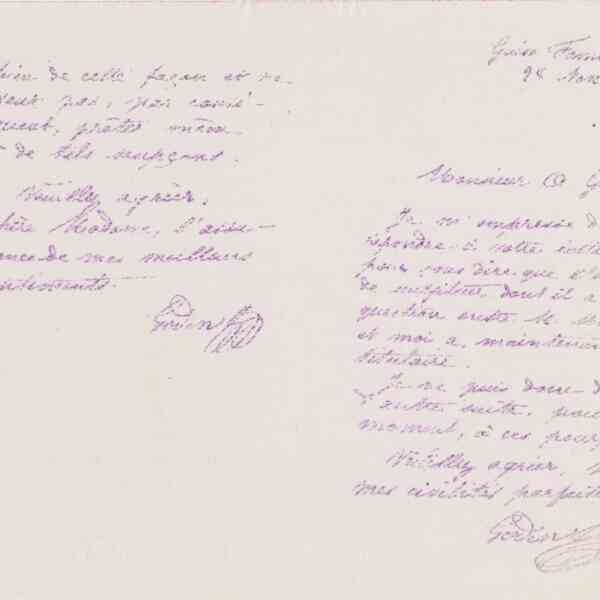 de cette façon et ne
peut pas, par consé-
quent, prêter même
à de tels soupçons.
Veuillez agréer,
chère Madame, l'assu-
rance de mes meilleurs
sentiments.
Godin
Guise Fam
28 Nov
Monsieur
Je m'empresse d
répondre à votre lettre
pour vous dire que
de suppléer dont il a
question entre M.
et moi a, maintenan
titulaire.
Je ne puis donc d
autre suite, pou
moment, à ces pour
Veuillez agréer,
mes civilités parfaite
Godin